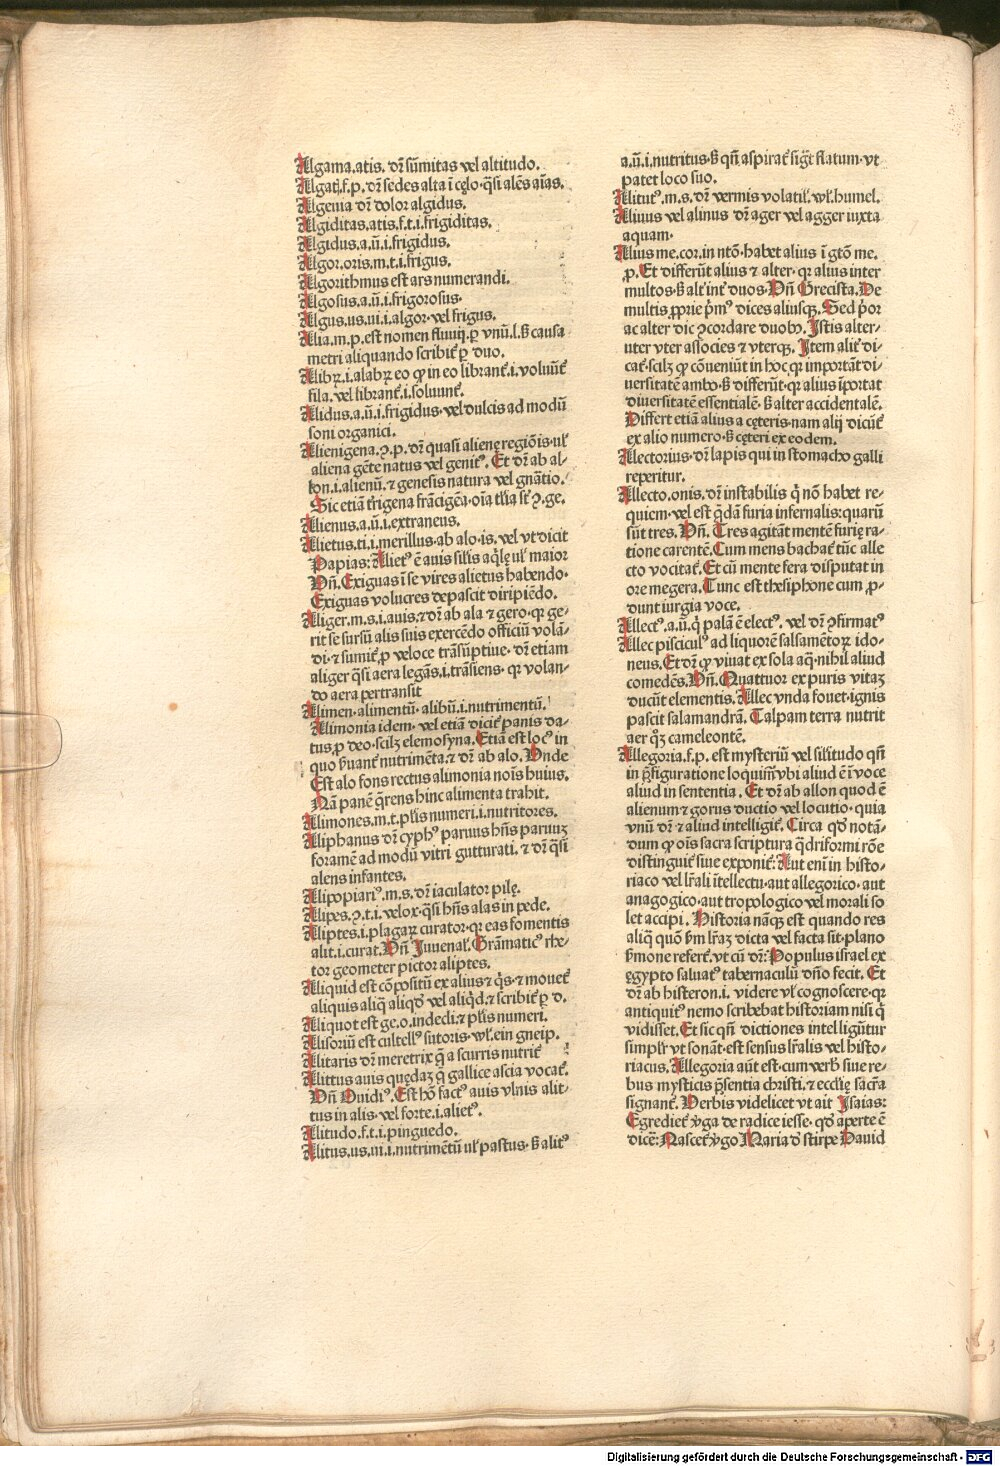 Algama.atis. dr̄ sūmitas vel altitudo.
Algatꝭ.f.p. dr̄ sedes alta ī cęlo·q̄si alēs aīas.
Algema dr̄ dolor algidus.
Algiditas.atis.f.t.i.frigiditas.
Algidus.a.ū.i.frigidus.
Algor.oris.m.t.i.frigus.
Algorithmus est ars numerandi.
Algosus.a.ū.i.frigorosus·
Algus.us.ui.i.algor·vel frigus.
Alia.m.p.est nomen fluuij.ꝑ vnū.l.s̄ causa
metri aliquando scribit᷑ ꝑ duo.
Alibꝝ.i.alabꝝ eo ꝙ in eo librant᷑.i.voluūt᷑
fila. vel librant᷑.i.soluunt᷑.
Alidus.a.ū.i.frigidus·vel dulcis ad modū
soni organici.
Alienigena.ꝯ.p. dr̄ quasi alienę regiōis·ul̓
aliena gēte natus vel genitꝰ. Et dr̄ ab al-
lon.i.alienū.⁊ genesis natura vel gnātio.
Sic etiā t̓rigena frācigēa·oīa tl̓ia st̄ ꝯ.ge.
Alienus.a.ū.i.extraneus.
Alietus.ti.i.merillus·ab alo.is. vel vt dicit
Papias: Alietꝰ ē auis sil̓is aq̓lę ul̓ maior
Vn̄. Exiguas ī se vires alietus habendo·
Exiguas volucres depascit diripiēdo.
Aliger.m.s.i.auis:⁊ dr̄ ab ala ⁊ gero·qꝛ ge-
rit se sursū alis suis exercēdo officiū volā-
di·⁊ sumit᷑ ꝓ veloce trāsūptiue· dr̄ etiam
aliger q̄si aera legās.i.trāsiens· qꝛ volan-
do aera pertransit
Alimen·alimentū· alibū.i.nutrimentū.
Alimonia idem· vel etiā dicit᷑ panis da-
tus ꝓ deo·scilꝫ elemosyna. Etiā est locꝰ in
quo s̓uant᷑ nutrimēta:⁊ dr̄ ab alo. Vnde
Est alo fons rectus alimonia noīs huius.
Nā panē q̄rens hinc alimenta trahit.
Alimones.m.t.pl̓is numeri.i.nutritores.
Aliphanus dr̄ cyphꝰ paruus hn̄s paruuꝫ
foramē ad modū vitri gutturati. ⁊ dr̄ q̄si
alens infantes.
Alipopiariꝰ.m.s. dr̄ iaculator pilę.
Alipes.ꝯ.t.i.velox·q̄si hn̄s alas in pede.
Aliptes.i.plagaꝝ curator·qꝛ eas fomentis
alit.i.curat. Vn̄ Iuuenal̓. Grāmaticꝰ rhe-
tor geometer pictor aliptes.
Aliquid est cōpositū ex alius ⁊ q̓s·⁊ mouet᷑
aliquis aliq̄ aliqd̓ vel aliq̓d.⁊ scribit᷑ ꝑ d.
Aliquot est ge.o.indecli.⁊ pl̓is numeri.
Alisoriū est cultellꝰ sutoris· wl̓.ein gneip.
Alitaris dr̄ meretrix q̄ a scurris nutrit᷑
Alittus auis quędaꝫ q̄ gallice ascia vocat᷑.
Vn̄ Ouidiꝰ. Est hō factꝰ auis vlnis alit-
tus in alis·vel forte.i.alietꝰ.
Alitudo.f.t.i.pinguedo.
Alitus.us.ui.i.nutrimētū ul̓ pastus· s̄ alitꝰ
a.ū.i.nutritus·s̄ qn̄ aspirat᷑ sig̓t flatum·vt
patet loco suo.
Alitutꝰ.m.s. dr̄ vermis volatil̓. wl̓.humel.
Aliuus vel alinus dr̄ ager vel agger iuxta
aquam·
Alius me.cor.in ntō·habet alius ī gtō me.
ꝓ. Et differūt alius ⁊ alter· qꝛ alius inter
multos·s̄ alt̓ int̓ duos. Vn̄ Grecista. De
multis ꝓprie p̓mꝰ dices aliusqꝫ. Sed p̓or
ac alter dic ꝯcordare duobꝰ. Istis alter-
uter vter associes ⁊ vterqꝫ. Item alit̓ di-
cat᷑·scilꝫ ꝙ cōueniūt in hoc qꝛ important di-
uersitatē ambo·s̄ differūt·qꝛ alius īportat
diuersitatē essentialē· s̄ alter accidentalē.
Differt etiā alius a cęteris·nam alij dicūt᷑
ex alio numero·s̄ cęteri ex eodem.
Allectorius·dr̄ lapis qui in stomacho galli
reperitur.
Allecto.onis. dr̄ instabilis q̄ nō habet re-
quiem·vel est q̄dā furia infernalis:quarū
sūt tres. Vn̄. Tres agitāt mentē furię ra-
tione carentē. Cum mens bachat᷑ tūc alle
cto vocitat᷑. Et cū mente fera disputat in
ore megera. Tunc est thesiphone cum ꝓ-
dunt iurgia voce.
Allectꝰ.a.ū.q̓ palā ē electꝰ. vel dr̄ ꝯfirmatꝰ
Allec pisciculꝰ ad liquorē salsamētoꝝ ido-
neus. Et dr̄ ꝙ viuat ex sola aq̄·nihil aliud
comedēs. Vn̄. Quattuor ex puris vitaꝫ
ducūt elementis. Allec vnda fouet·ignis
pascit salamandrā. Talpam terra nutrit
aer qꝫ cameleontē.
Allegoria.f.p. est mysteriū vel sil̓itudo qn̄
in p̄figuratione loquimꝰ vbi aliud ē ī voce
aliud in sententia. Et dr̄ ab allon quod ē
alienum ⁊ gorus ductio vel locutio· quia
vnū dr̄ ⁊ aliud intelligit᷑. Circa qd̓ notā-
dum ꝙ oīs sacra scriptura q̄driformi rōe
distinguit᷑ siue exponit᷑: Aut enī in histo-
riaco vel lr̄ali ītellectu·aut allegorico· aut
anagogico·aut tropologico vel morali so
let accipi. Historia nāqꝫ est quando res
aliq̄ quō s̓m lr̄aꝫ dicta vel facta sit·plano
s̓mone refert᷑. vt cū dr̄: Populus israel ex
ęgypto saluatꝰ tabernaculū dn̄o fecit. Et
dr̄ ab histeron.i. videre vl̓ cognoscere·qꝛ
antiquitꝰ nemo scribebat historiam nisi q̓
vidisset. Et sic qn̄ dictiones intelligūtur
simpl̓r vt sonāt·est sensus lr̄alis vel histo-
riacus. Allegoria aūt est·cum verbꝭ siue re-
bus mysticis p̄sentia christi·⁊ eccl̓ię sacr̄a
signant᷑. Verbis videlicet vt ait Isaias:
Egrediet᷑ v̓ga de radice iesse· qd̓ aperte ē
dicē: Nascet᷑ v̓go Maria d̓ stirpe Dauid
Digitalisierung gefördert durch die Deutsche Forschungsgemeinschaft - DFG